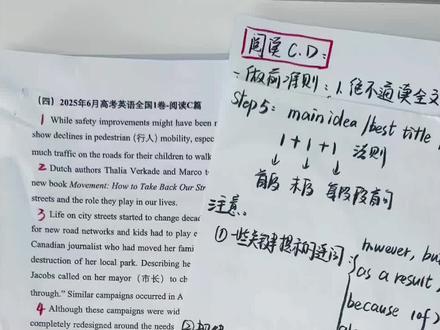 (四) 2025年6月高考英语全国1卷-阅读C篇
1 While safety improvements might have been
show declines in pedestrian (行人) mobility, espec
much traffic on the roads for their children to walk
2 Dutch authors Thalia Verkade and Marco
new book Movement: How to Take Back Our Str
streets and the role they play in our lives.
3 Life on city streets started to change decad
for new road networks and kids had to play
Canadian journalist who had moved her fami
destruction of her local park. Describing he
Jacobs called on her mayor (市长) to ch
through.” Similar campaigns occurred in A
4 Although these campaigns were wid
completely redesigned around the needs
阅读 C.D:
一做前准则: 1. 绝不通读全文
Step5: main idea / best title
1+1+1 法则
首段 末段 每段段首句
注意:
①一些关键提示的连词
however, but
as a result,
because of
②